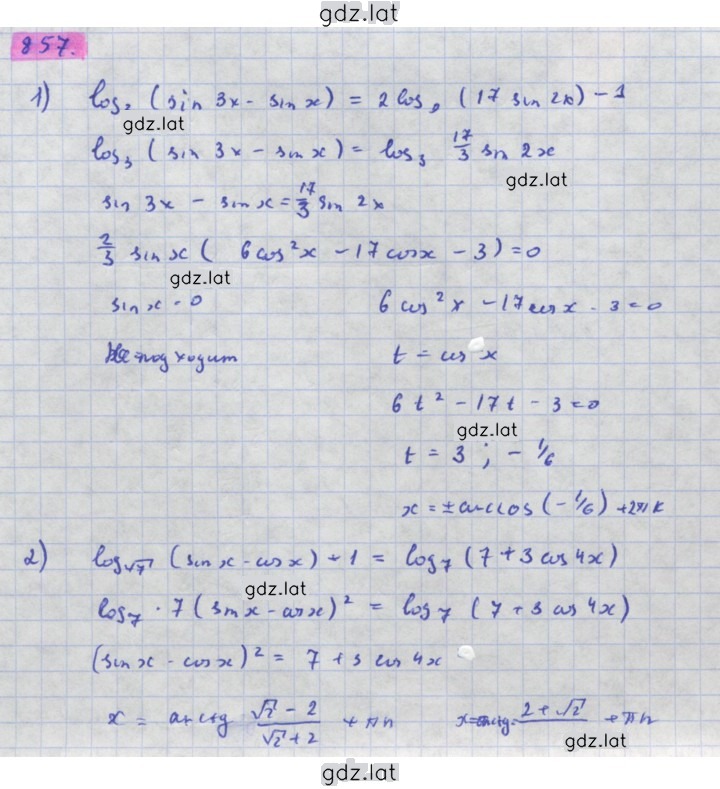 gdz.lat
857.
1) log₃ (sin 3x - sin x) = 2 log₉ (17 sin 2x) - 1
gdz.lat
log₃ (sin 3x - sin x) = log₃ 17/3 sin 2x
gdz.lat
sin 3x - sin x = 17/3 sin 2x
2/3 sin x (6 cos² x - 17 cos x - 3) = 0
gdz.lat
sin x = 0 6 cos² x - 17 cos x - 3 = 0
Не подходит t = cos x
6t² - 17t - 3 = 0
gdz.lat
t = 3 ; - 1/6
x = ± arccos (- 1/6) + 2πk
2) log√7 (sin x - cos x) + 1 = log₇ (7 + 3 cos 4x)
gdz.lat
log₇ · 7 (sin x - cos x)² = log₇ (7 + 3 cos 4x)
(sin x - cos x)² = 7 + 3 cos 4x
x = arctg (√2 - 2)/(√2 + 2) + πn x = arctg (2 + √2)/ + πn
gdz.lat
gdz.lat